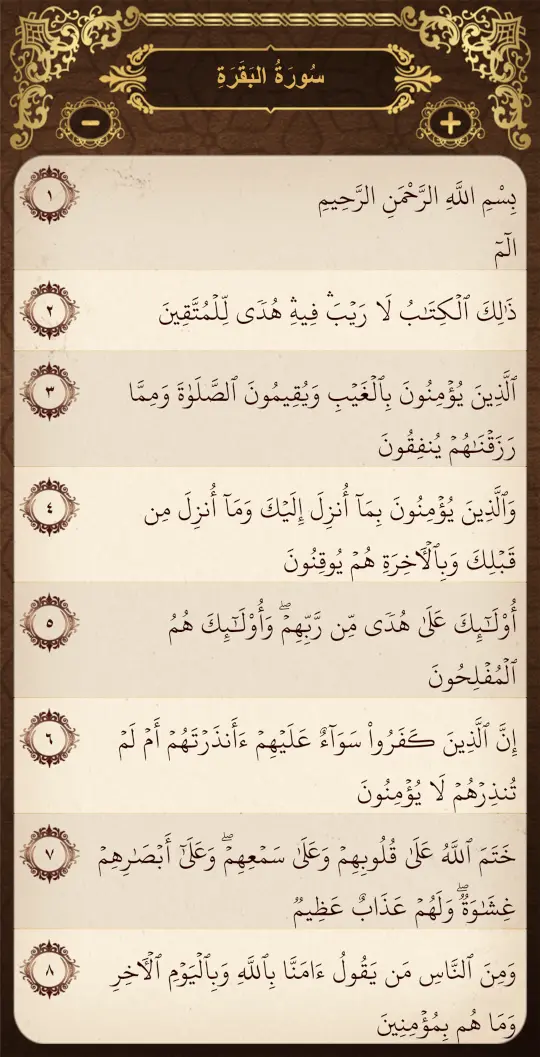 سُورَةُ البَقَرَةِ
− +
بِسْمِ اللَّهِ الرَّحْمَنِ الرَّحِيمِ ١
الٓمٓ
ذَٰلِكَ ٱلْكِتَٰبُ لَا رَيْبَ ۛ فِيهِ ۛ هُدًى لِّلْمُتَّقِينَ ٢
ٱلَّذِينَ يُؤْمِنُونَ بِٱلْغَيْبِ وَيُقِيمُونَ ٱلصَّلَوٰةَ وَمِمَّا ٣
رَزَقْنَٰهُمْ يُنفِقُونَ
وَٱلَّذِينَ يُؤْمِنُونَ بِمَآ أُنزِلَ إِلَيْكَ وَمَآ أُنزِلَ مِن ٤
قَبْلِكَ وَبِٱلْءَاخِرَةِ هُمْ يُوقِنُونَ
أُوْلَٰٓئِكَ عَلَىٰ هُدًى مِّن رَّبِّهِمْ ۖ وَأُوْلَٰٓئِكَ هُمُ ٥
ٱلْمُفْلِحُونَ
إِنَّ ٱلَّذِينَ كَفَرُوا۟ سَوَآءٌ عَلَيْهِمْ ءَأَنذَرْتَهُمْ أَمْ لَمْ ٦
تُنذِرْهُمْ لَا يُؤْمِنُونَ
خَتَمَ ٱللَّهُ عَلَىٰ قُلُوبِهِمْ وَعَلَىٰ سَمْعِهِمْ ۖ وَعَلَىٰٓ أَبْصَٰرِهِمْ ٧
غِشَٰوَةٌ ۖ وَلَهُمْ عَذَابٌ عَظِيمٌ
وَمِنَ ٱلنَّاسِ مَن يَقُولُ ءَامَنَّا بِٱللَّهِ وَبِٱلْيَوْمِ ٱلْءَاخِرِ ٨
وَمَا هُم بِمُؤْمِنِينَ